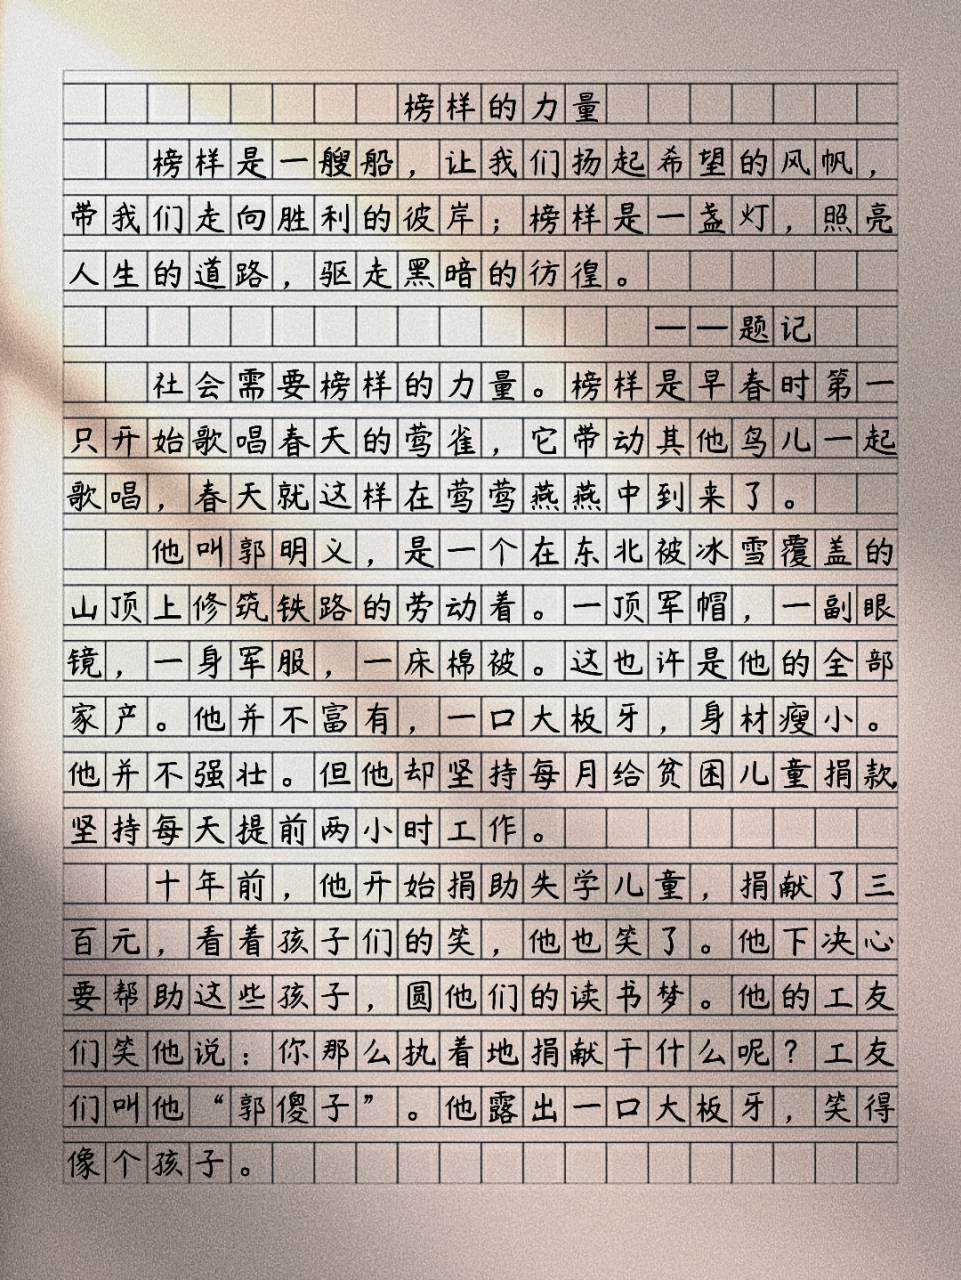 榜样的力量
榜样是一艘船，让我们扬起希望的风帆，
带我们走向胜利的彼岸；榜样是一盏灯，照亮
人生的道路，驱走黑暗的彷徨。
——题记
社会需要榜样的力量。榜样是早春时第一
只开始歌唱春天的莺雀，它带动其他鸟儿一起
歌唱，春天就这样在莺莺燕燕中到来了。
他叫郭明义，是一个在东北被冰雪覆盖的
山顶上修筑铁路的劳动着。一顶军帽，一副眼
镜，一身军服，一床棉被。这也许是他的全部
家产。他并不富有，一口大板牙，身材瘦小。
他并不强壮。但他却坚持每月给贫困儿童捐款
坚持每天提前两小时工作。
十年前，他开始捐助失学儿童，捐献了三
百元，看着孩子们的笑，他也笑了。他下决心
要帮助这些孩子，圆他们的读书梦。他的工友
们笑他说：你那么执着地捐献干什么呢？工友
们叫他“郭傻子”。他露出一口大板牙，笑得
像个孩子。